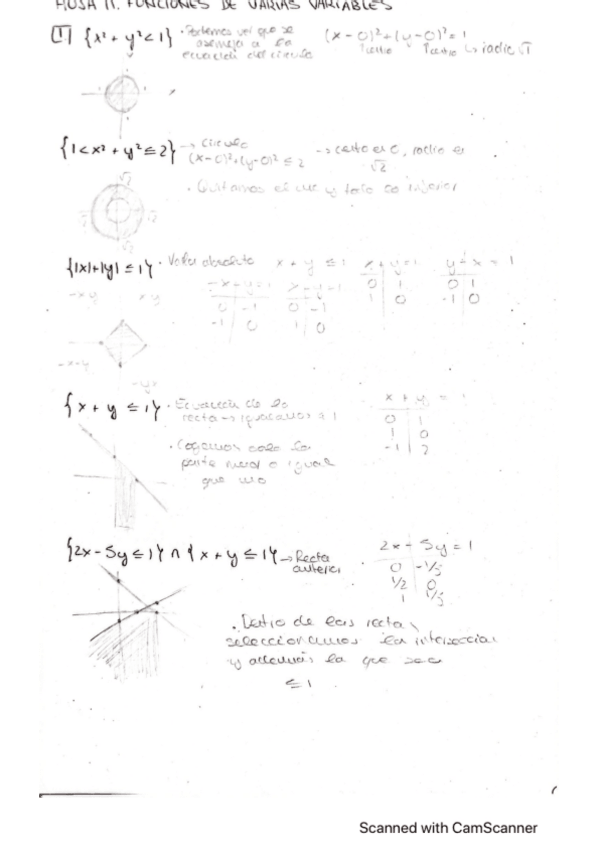 HOJA 11. FUNCIONES DE VARIAS VARIABLES
1 {x² + y² < 1} · Podemos ver que se asemeja a la ecuación del círculo (x-0)² + (y-0)² = 1
radio √1
{1 < x² + y² ≤ 2} → Círculo (x-0)² + (y-0)² ≤ 2 → centro es 0, radio es √2
√2
√2
· Quitamos el y todo lo inferior
{|x|+|y| ≤ 1} · Valor absoluto x + y ≤ 1 x + y = 1 y - x = 1
-x-y=1 x-y=1
0 1 0 1
1 0 -1 0
0 -1 0 -1
-1 0 1 0
-x y x y
-x-y
{x + y ≤ 1} · Ecuación de la recta → igualamos a 1
x + y = 1
0 1
1 0
-1 2
· Cogemos solo la parte menor o igual que uno
{2x - 5y ≤ 1} ∩ {x + y ≤ 1} → Recta anterior
2x - 5y = 1
0 -1/5
1/2 0
1 1/5
· Dentro de las rectas seleccionamos la intersección y además la que sea ≤ 1
Scanned with CamScanner